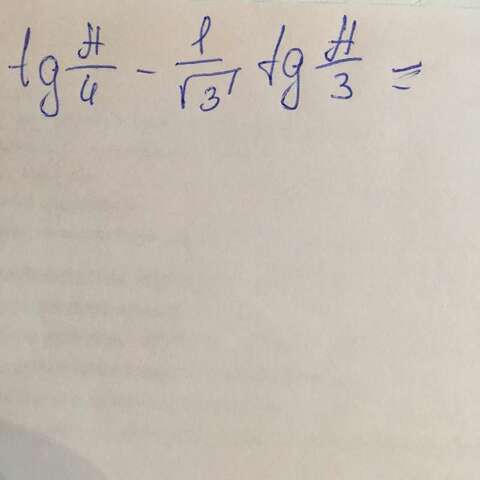 tg π/4 - 1/√3 tg π/3 =